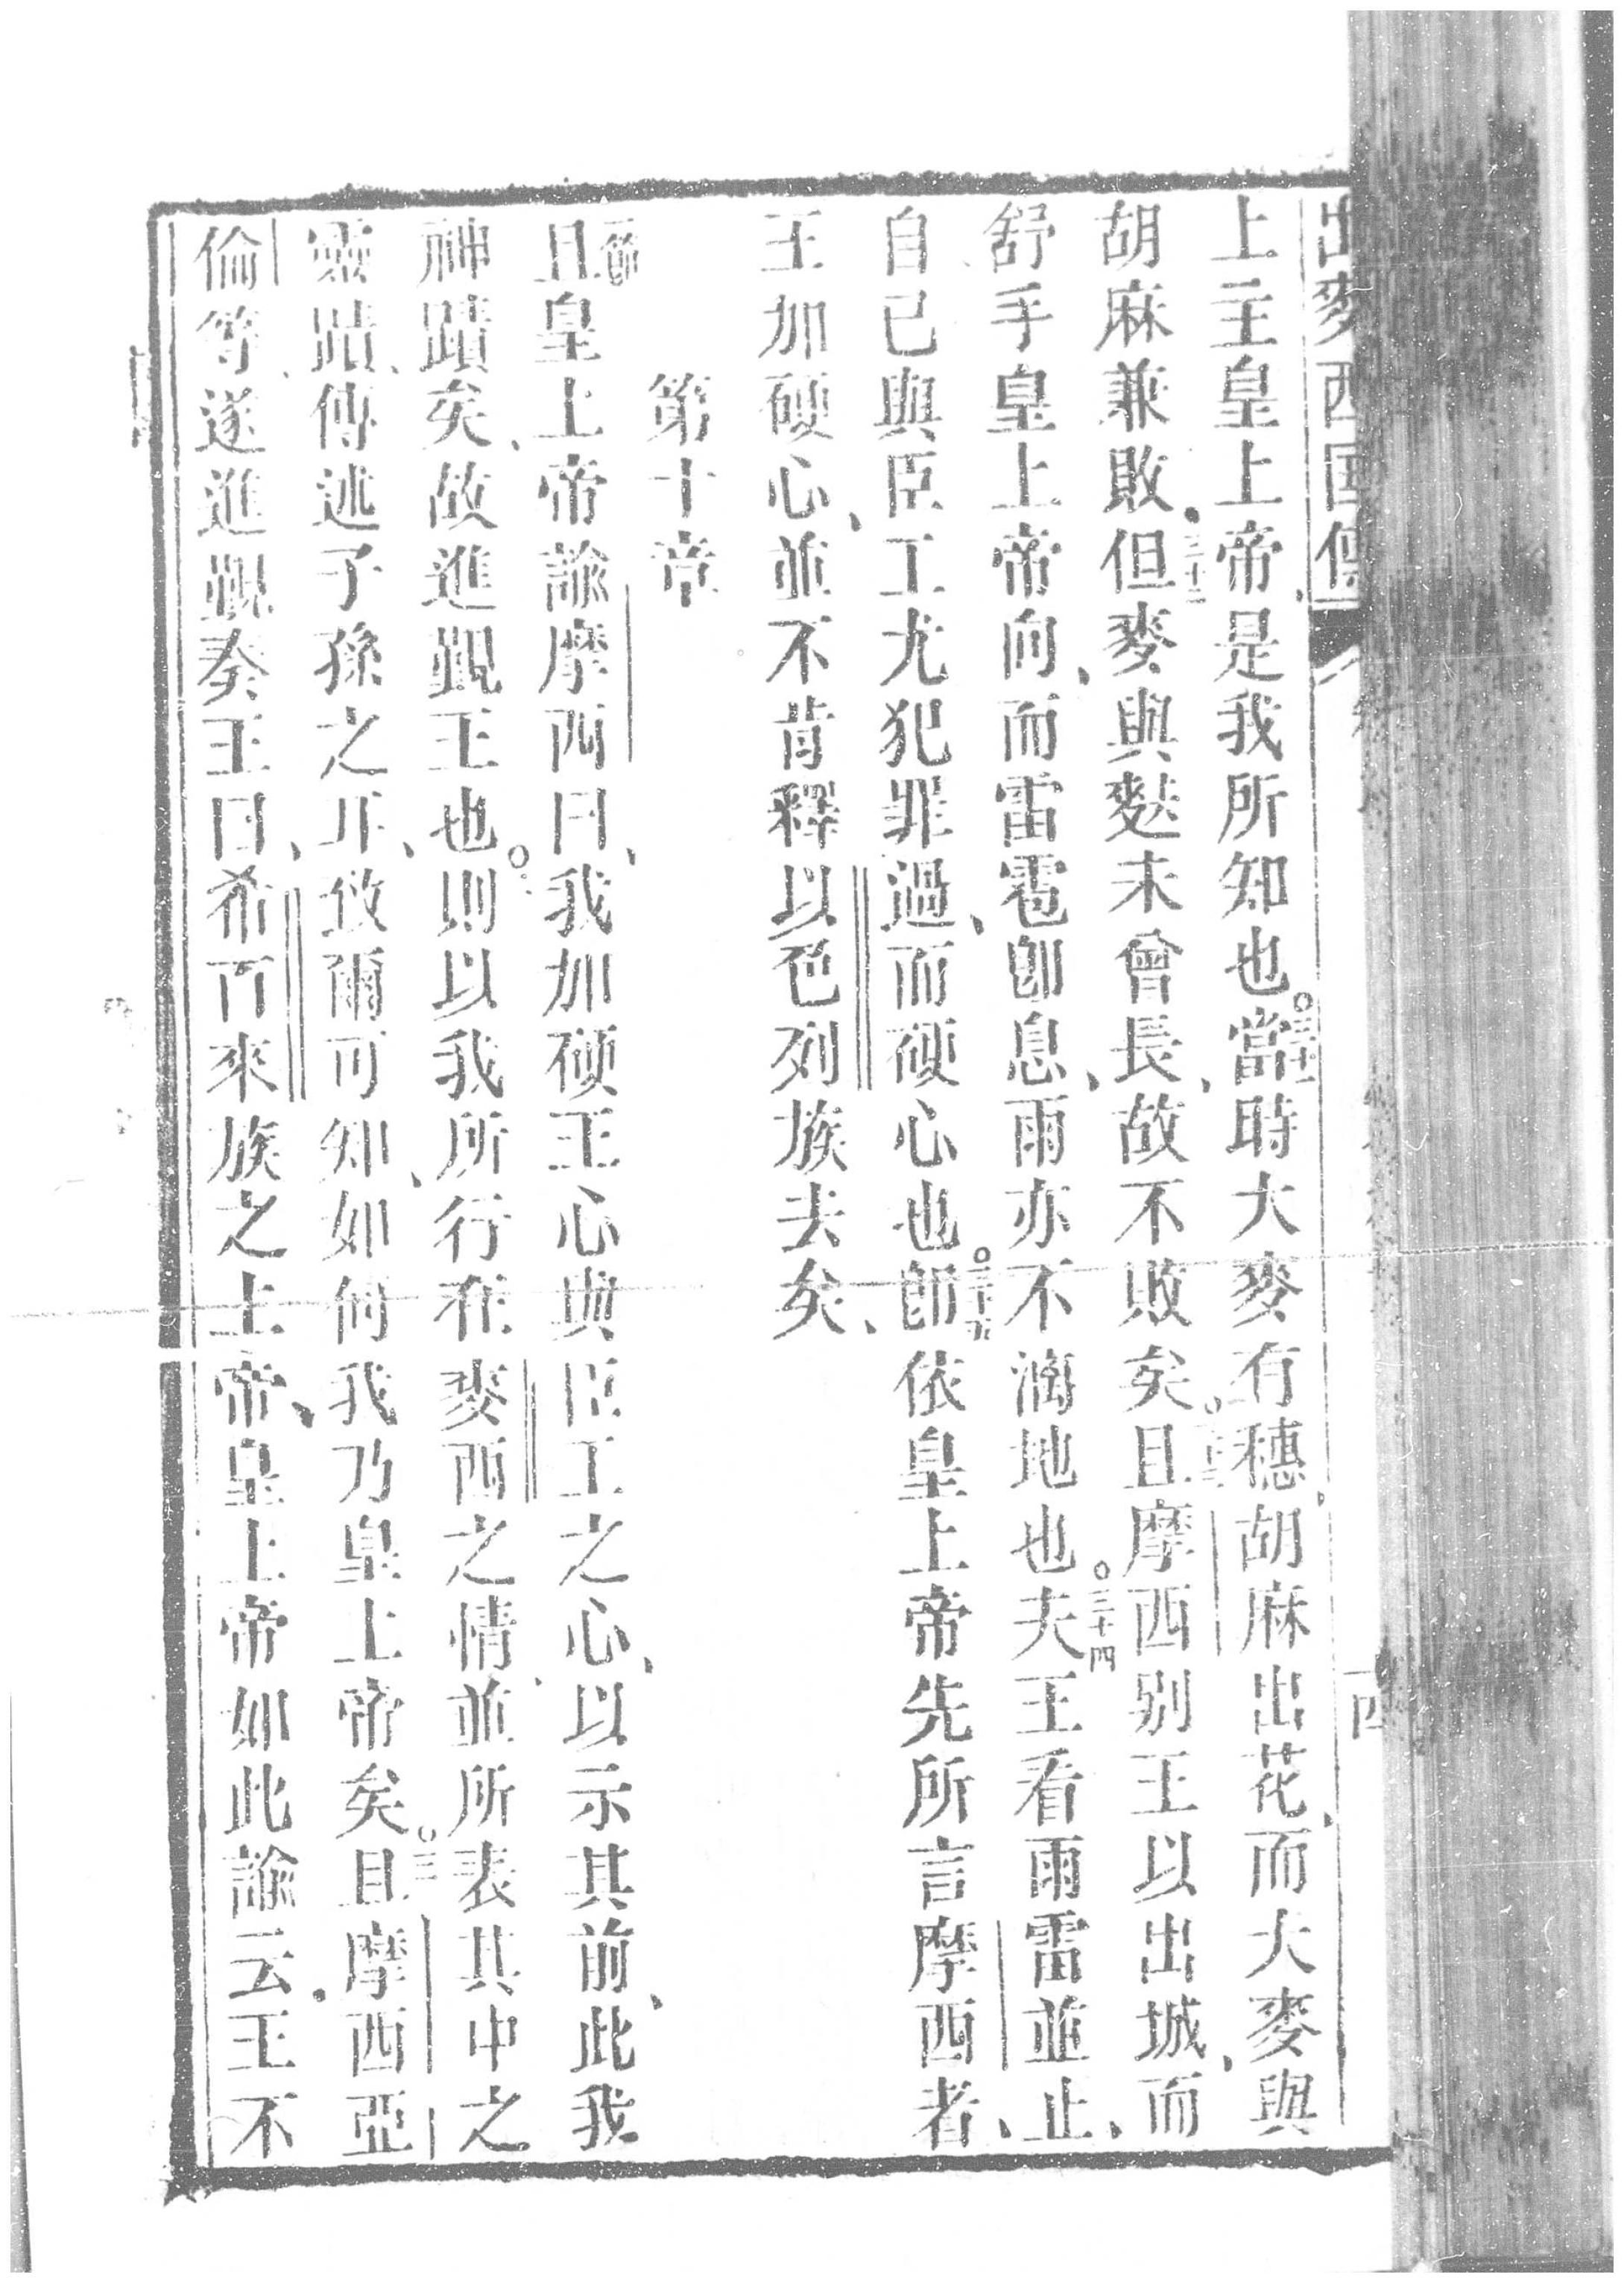 出麥西国傳
上主皇上帝、是我所知也。當時大麥有穗、胡麻出花、而大麥與
胡麻兼敗、但麥與麰未曾長、故不敗矣。且摩西別王以出城、而
舒手皇上帝向、而雷雹卽息、雨亦不漓地也。三十四夫王看雨雷並止、
自已與臣工尤犯罪過、而硬心也。卽依皇上帝先所言摩西者、
王加硬心、並不肯釋以色列族去矣、
第十章
一節且皇上帝諭摩西曰、我加硬王心與臣工之心、以示其前、此我
神蹟矣、故進觀王也。則以我所行在麥西之情、並所表其中之
靈蹟、傳述子孫之耳、致爾可知、如何我乃皇上帝矣。三且摩西亞
倫等、遂進觀奏王曰、希百來族之上帝、皇上帝如此諭云、王不